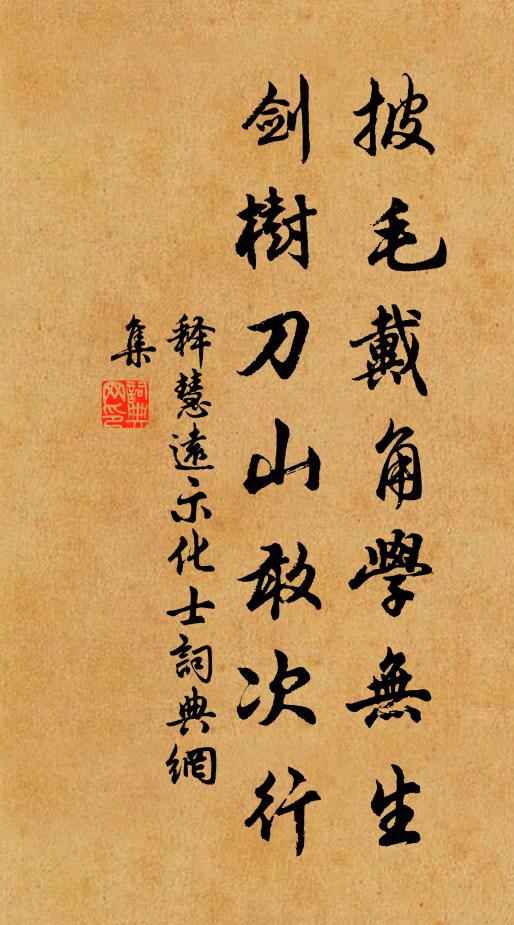 披毛戴角學無生
劍樹刀山敢次行
释慧遠示化士詞典網
集
詞典網印